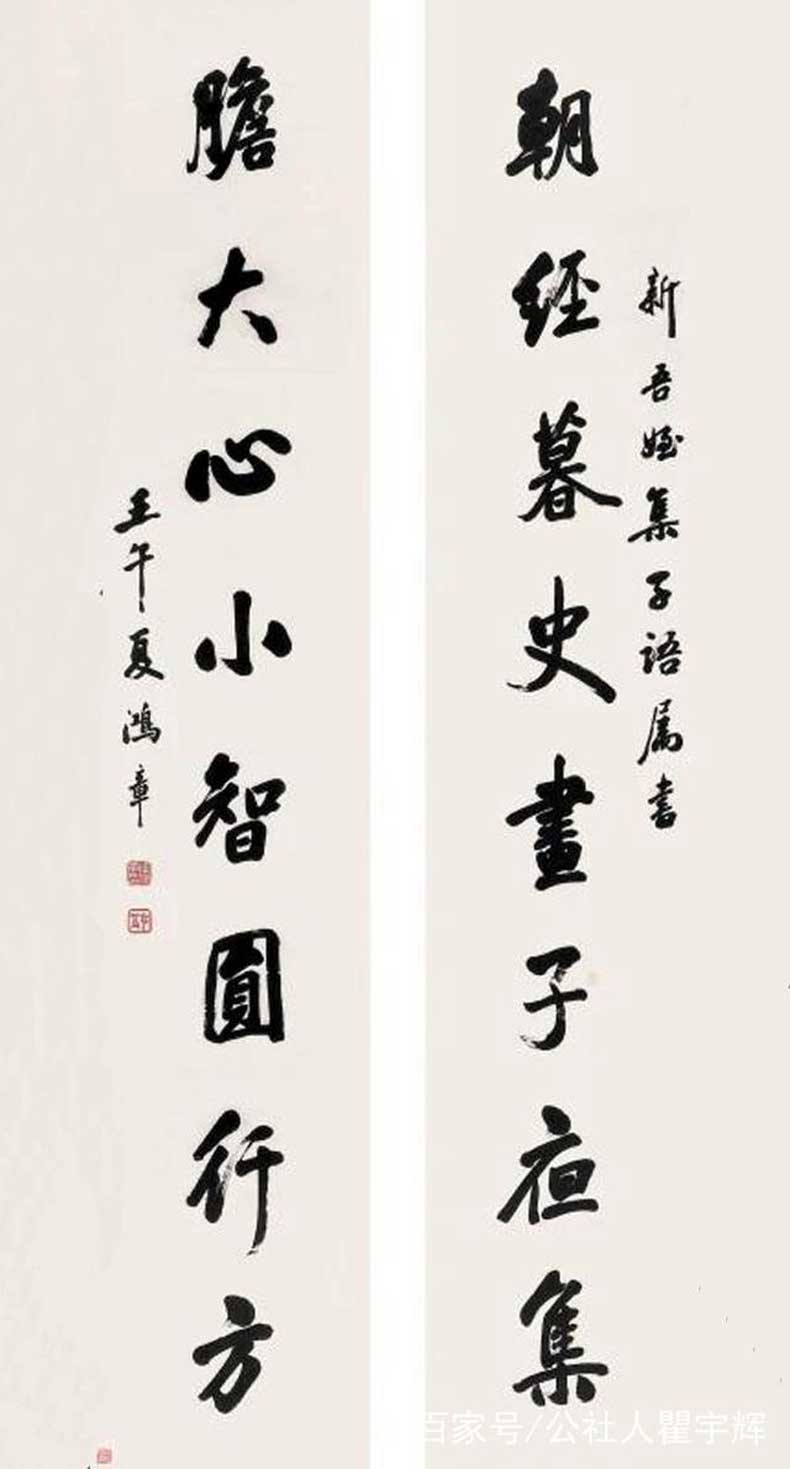 新吾姪集子語属書
朝經暮史晝子夜集
膽大心小智圓行方
壬午夏鴻章
百家号/公社人瞿宇辉